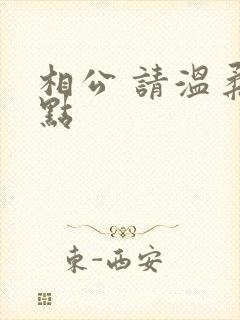 相公 請溫柔
點
東-西安